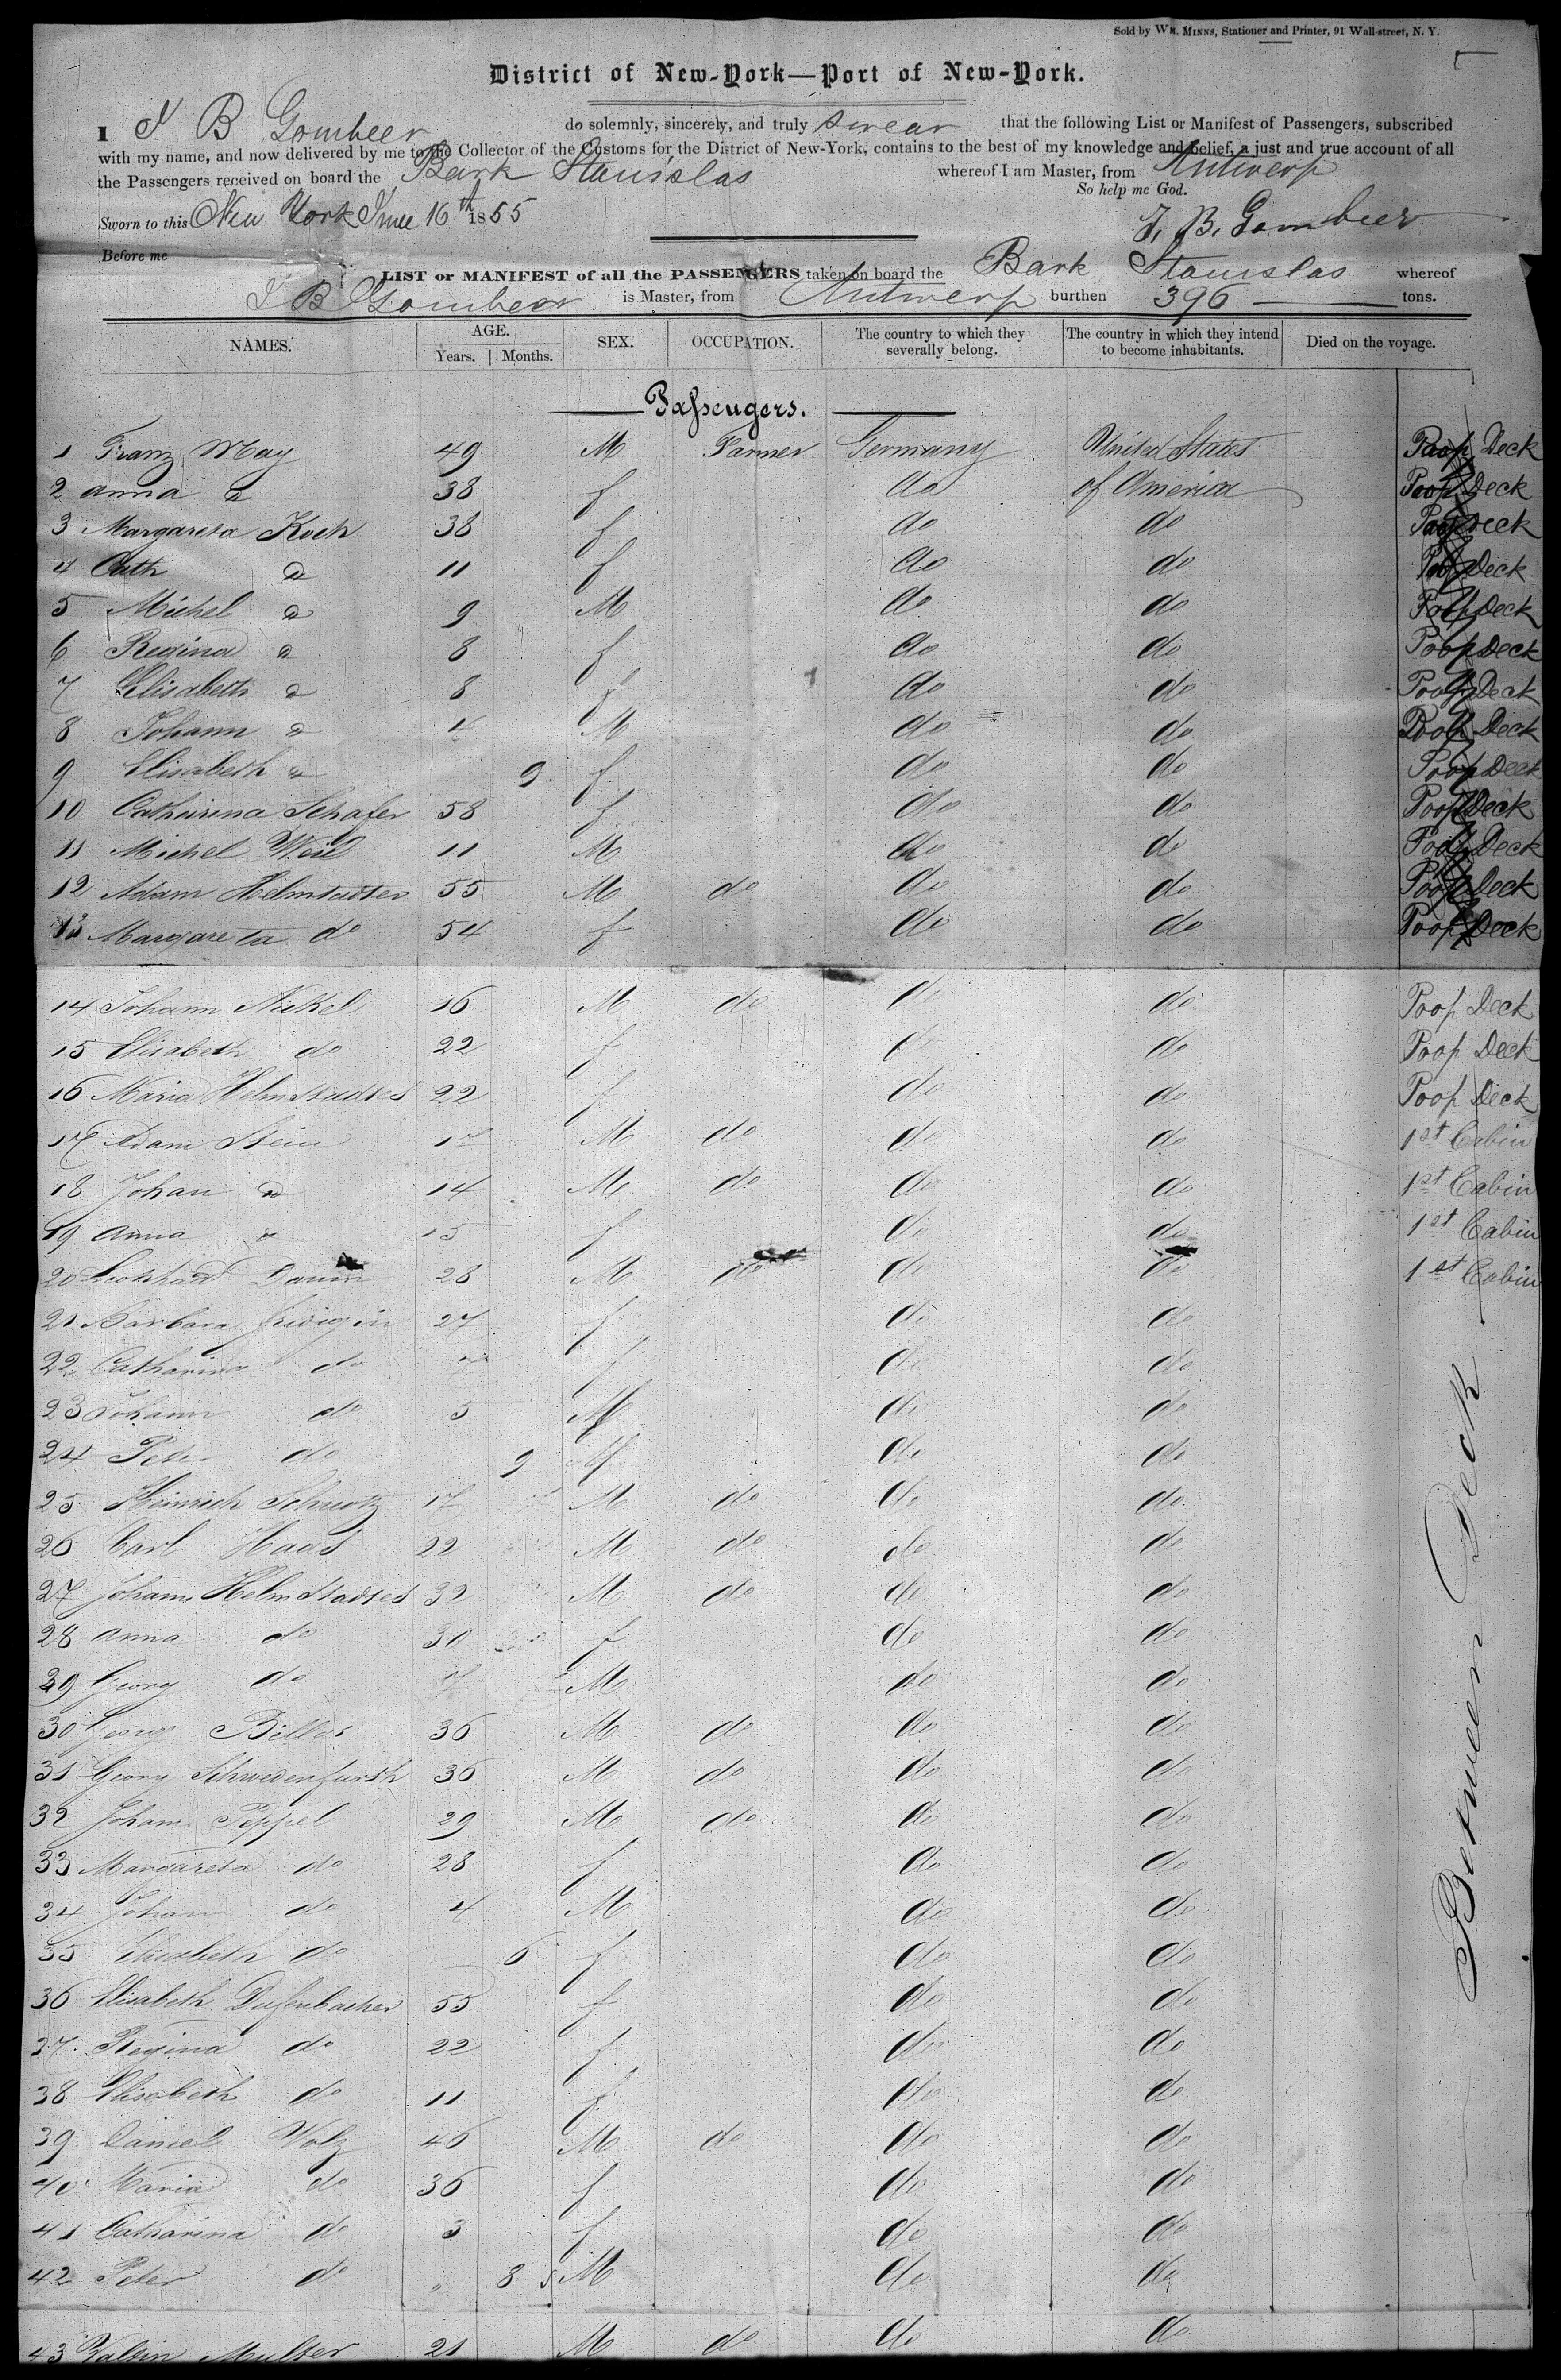 Sold by Wm. Minns, Stationer and Printer, 91 Wall-street, N. Y.
District of New-York—Port of New-York.
I J B Gombeer do solemnly, sincerely, and truly swear that the following List or Manifest of Passengers, subscribed
with my name, and now delivered by me to the Collector of the Customs for the District of New-York, contains to the best of my knowledge and belief, a just and true account of all
the Passengers received on board the Bark Stanislas whereof I am Master, from Antwerp
So help me God.
Sworn to this New York June 16th 1855
J. B. Gombeer
Before me
LIST or MANIFEST of all the PASSENGERS taken on board the Bark Stanislas whereof
J B Gombeer is Master, from Antwerp burthen 396 tons.
NAMES. AGE. Years. Months. SEX. OCCUPATION. The country to which they severally belong. The country in which they intend to become inhabitants. Died on the voyage.
Passengers.
1 Franz May 49 M Farmer Germany United States Poop Deck
2 Anna d 38 f do of America Poop Deck
3 Margareta Koch 38 f do do Poop Deck
4 Cath d 11 f do do Poop Deck
5 Michel d 9 M do do Poop Deck
6 Regina d 8 f do do Poop Deck
7 Elisabeth d 8 f do do Poop Deck
8 Johann d 4 M do do Poop Deck
9 Elisabeth d 9 f do do Poop Deck
10 Catharina Schafer 58 f do do Poop Deck
11 Michel Weil 11 M do do Poop Deck
12 Adam Helmstadter 55 M do do do Poop Deck
13 Margareta do 54 f do do Poop Deck
14 Johann Nickel 16 M do do do Poop Deck
15 Elisabeth do 22 f do do Poop Deck
16 Maria Helmstadter 22 f do do Poop Deck
17 Adam Stein 17 M do do do 1st Cabin
18 Johan d 14 M do do do 1st Cabin
19 Anna d 15 f do do 1st Cabin
20 Leonhard Damm 28 M do do do 1st Cabin
21 Barbara 27 f do do
22 Catharina do f do do
23 Johann do 5 M do do
24 Peter do 9 M do do
25 Heinrich 17 M do do do
26 Carl Haas 22 M do do do
27 Johann Helmstadter 32 M do do do
28 Anna do 30 f do do
29 Georg do M do do
30 Georg 36 M do do do
31 Georg Schwedenfursh 36 M do do do
32 Johann Peppel 29 M do do do
33 Margareta do 28 f do do
34 Johan do 4 M do do
35 Elisabeth do 6 f do do
36 Elisabeth Dufenbacher 55 f do do
37 Regina do 22 f do do
38 Elisabeth do 11 f do do
39 Daniel Volz 46 M do do do
40 Maria do 36 f do do
41 Catharina do 3 f do do
42 Peter do " 8 M do do
43 Multer 21 M do do do
Between Deck